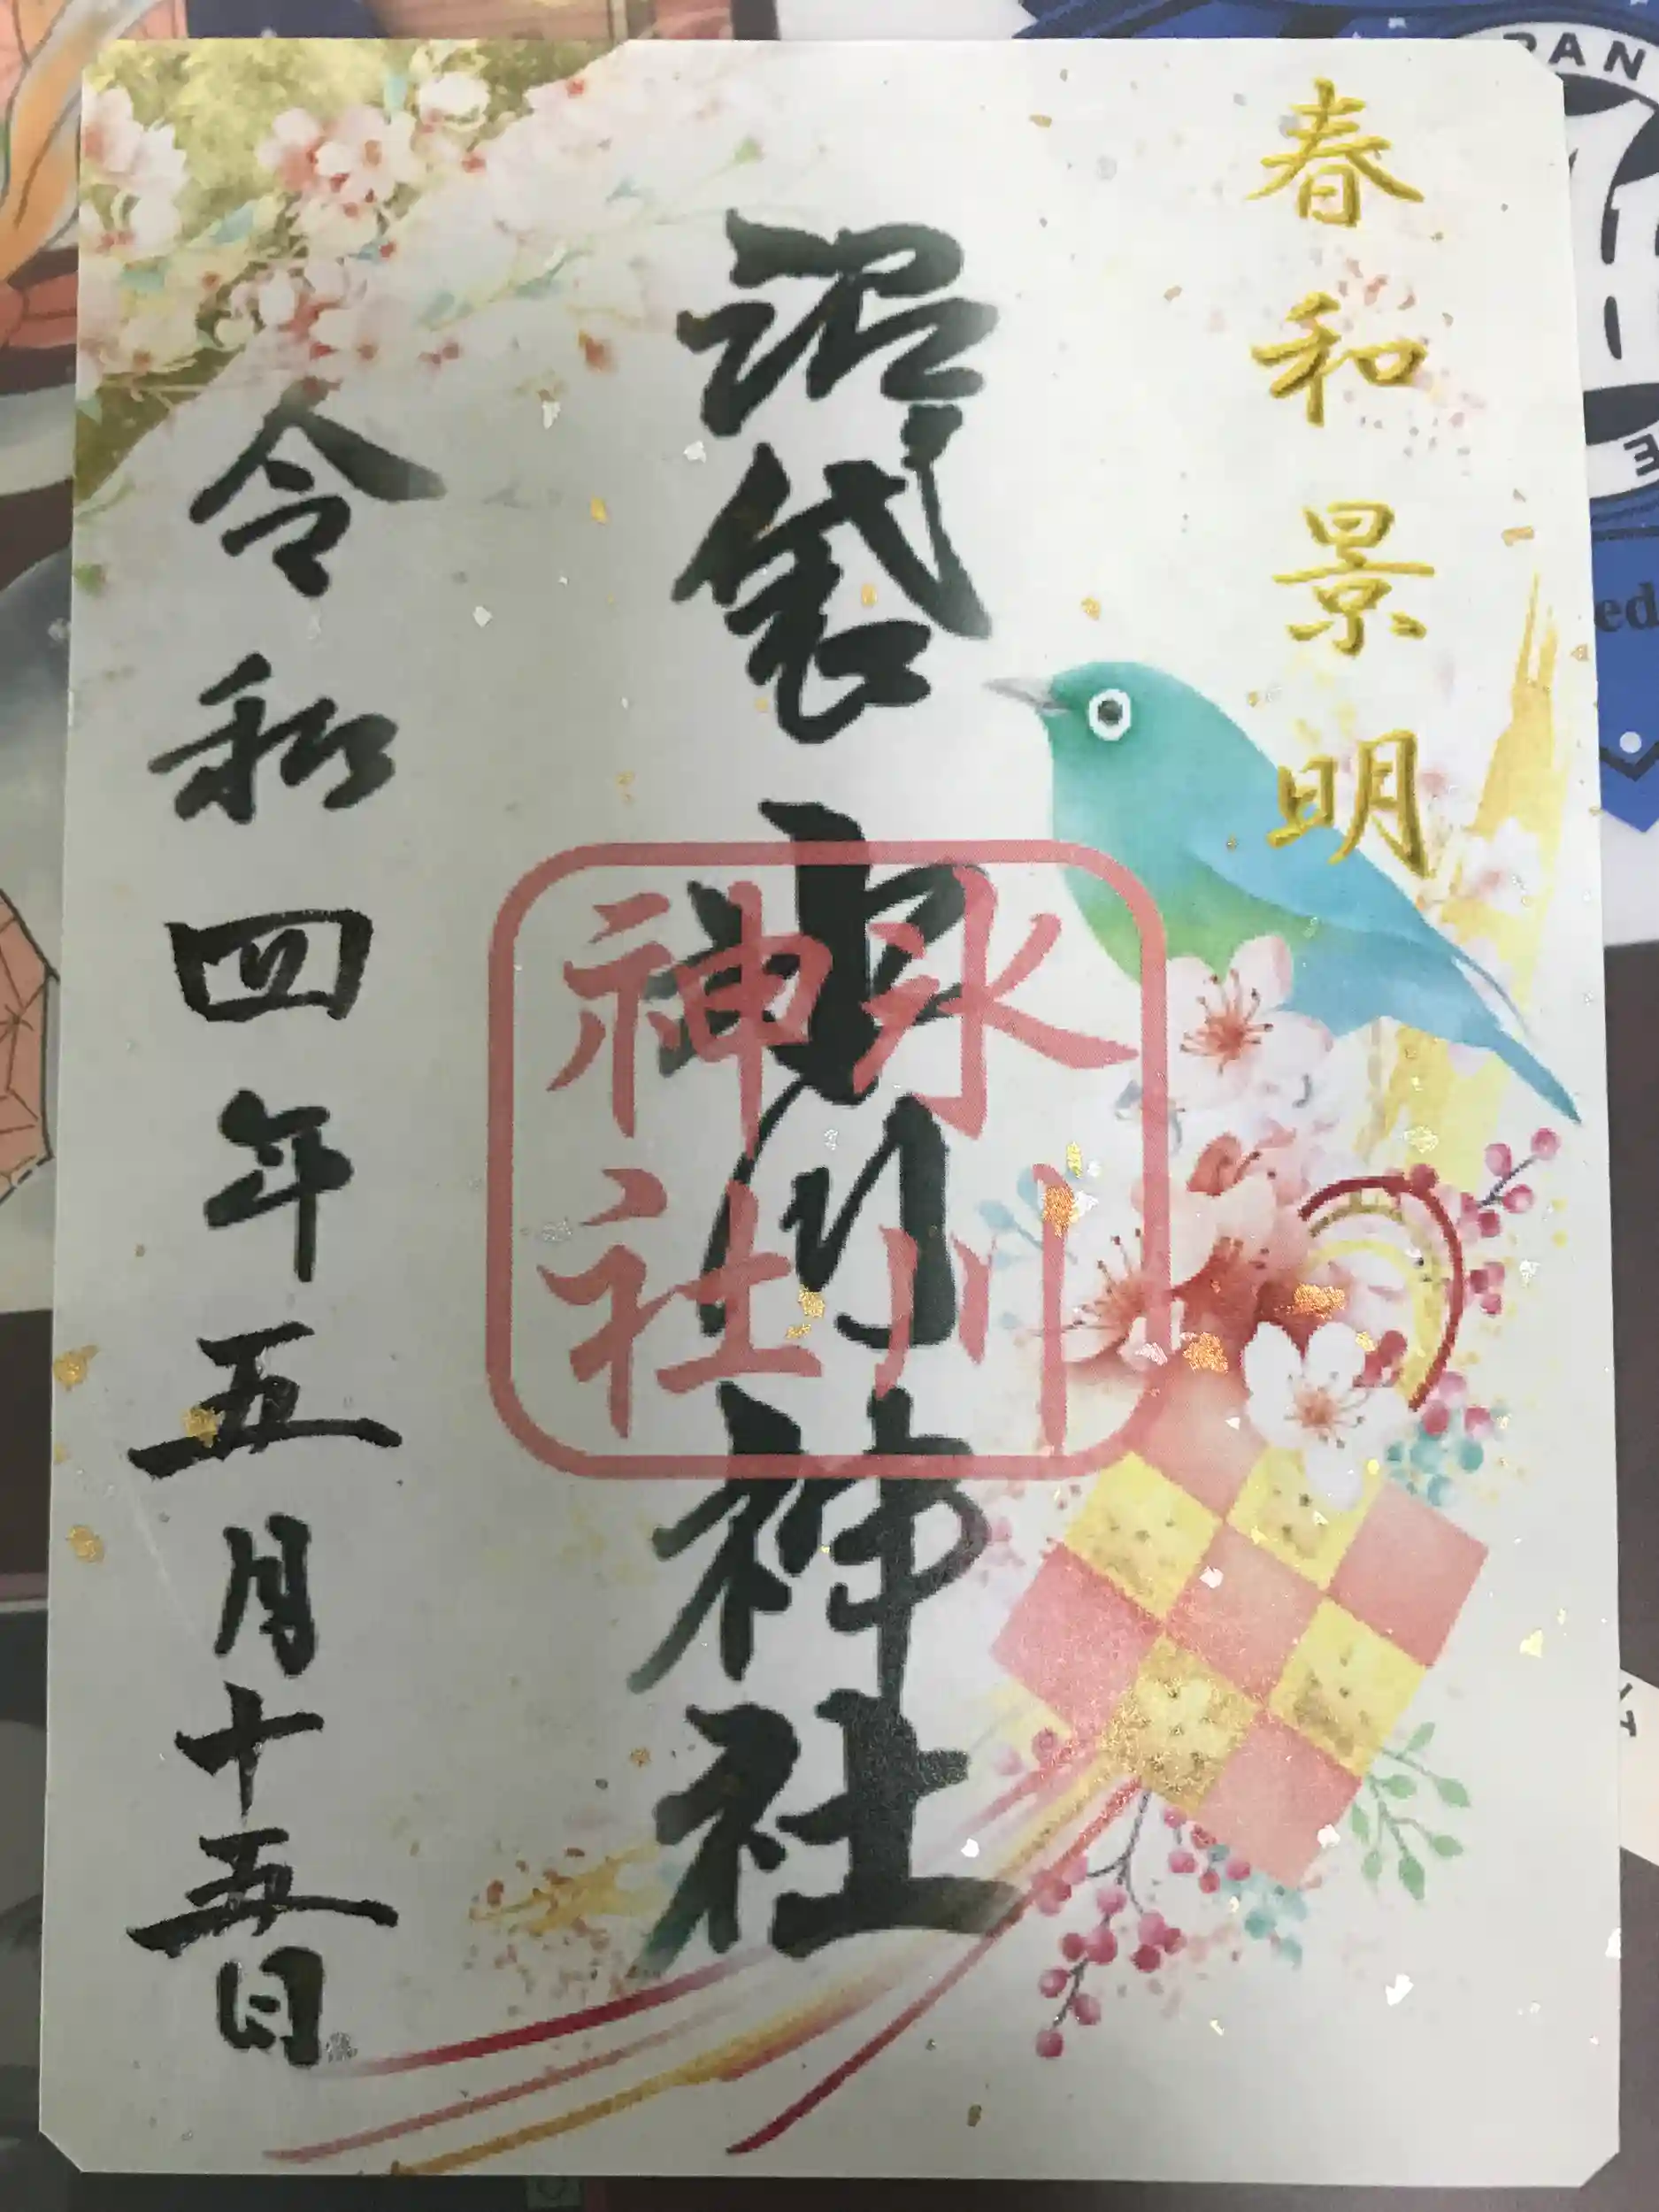 春和景明
沼袋氷川神社
氷川
神社
令和四年五月十五日
PAN
ed